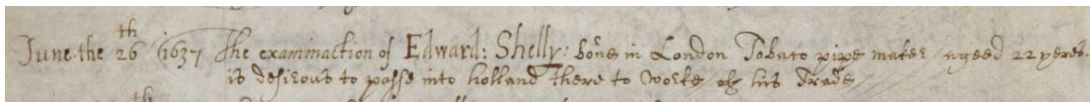 June the 26th 1637 The examinaction of Edward: Shelly: borne in London Tobaco pipe maker ageed 22 yeres
is desirous to passe into holland there to worke of his Trade